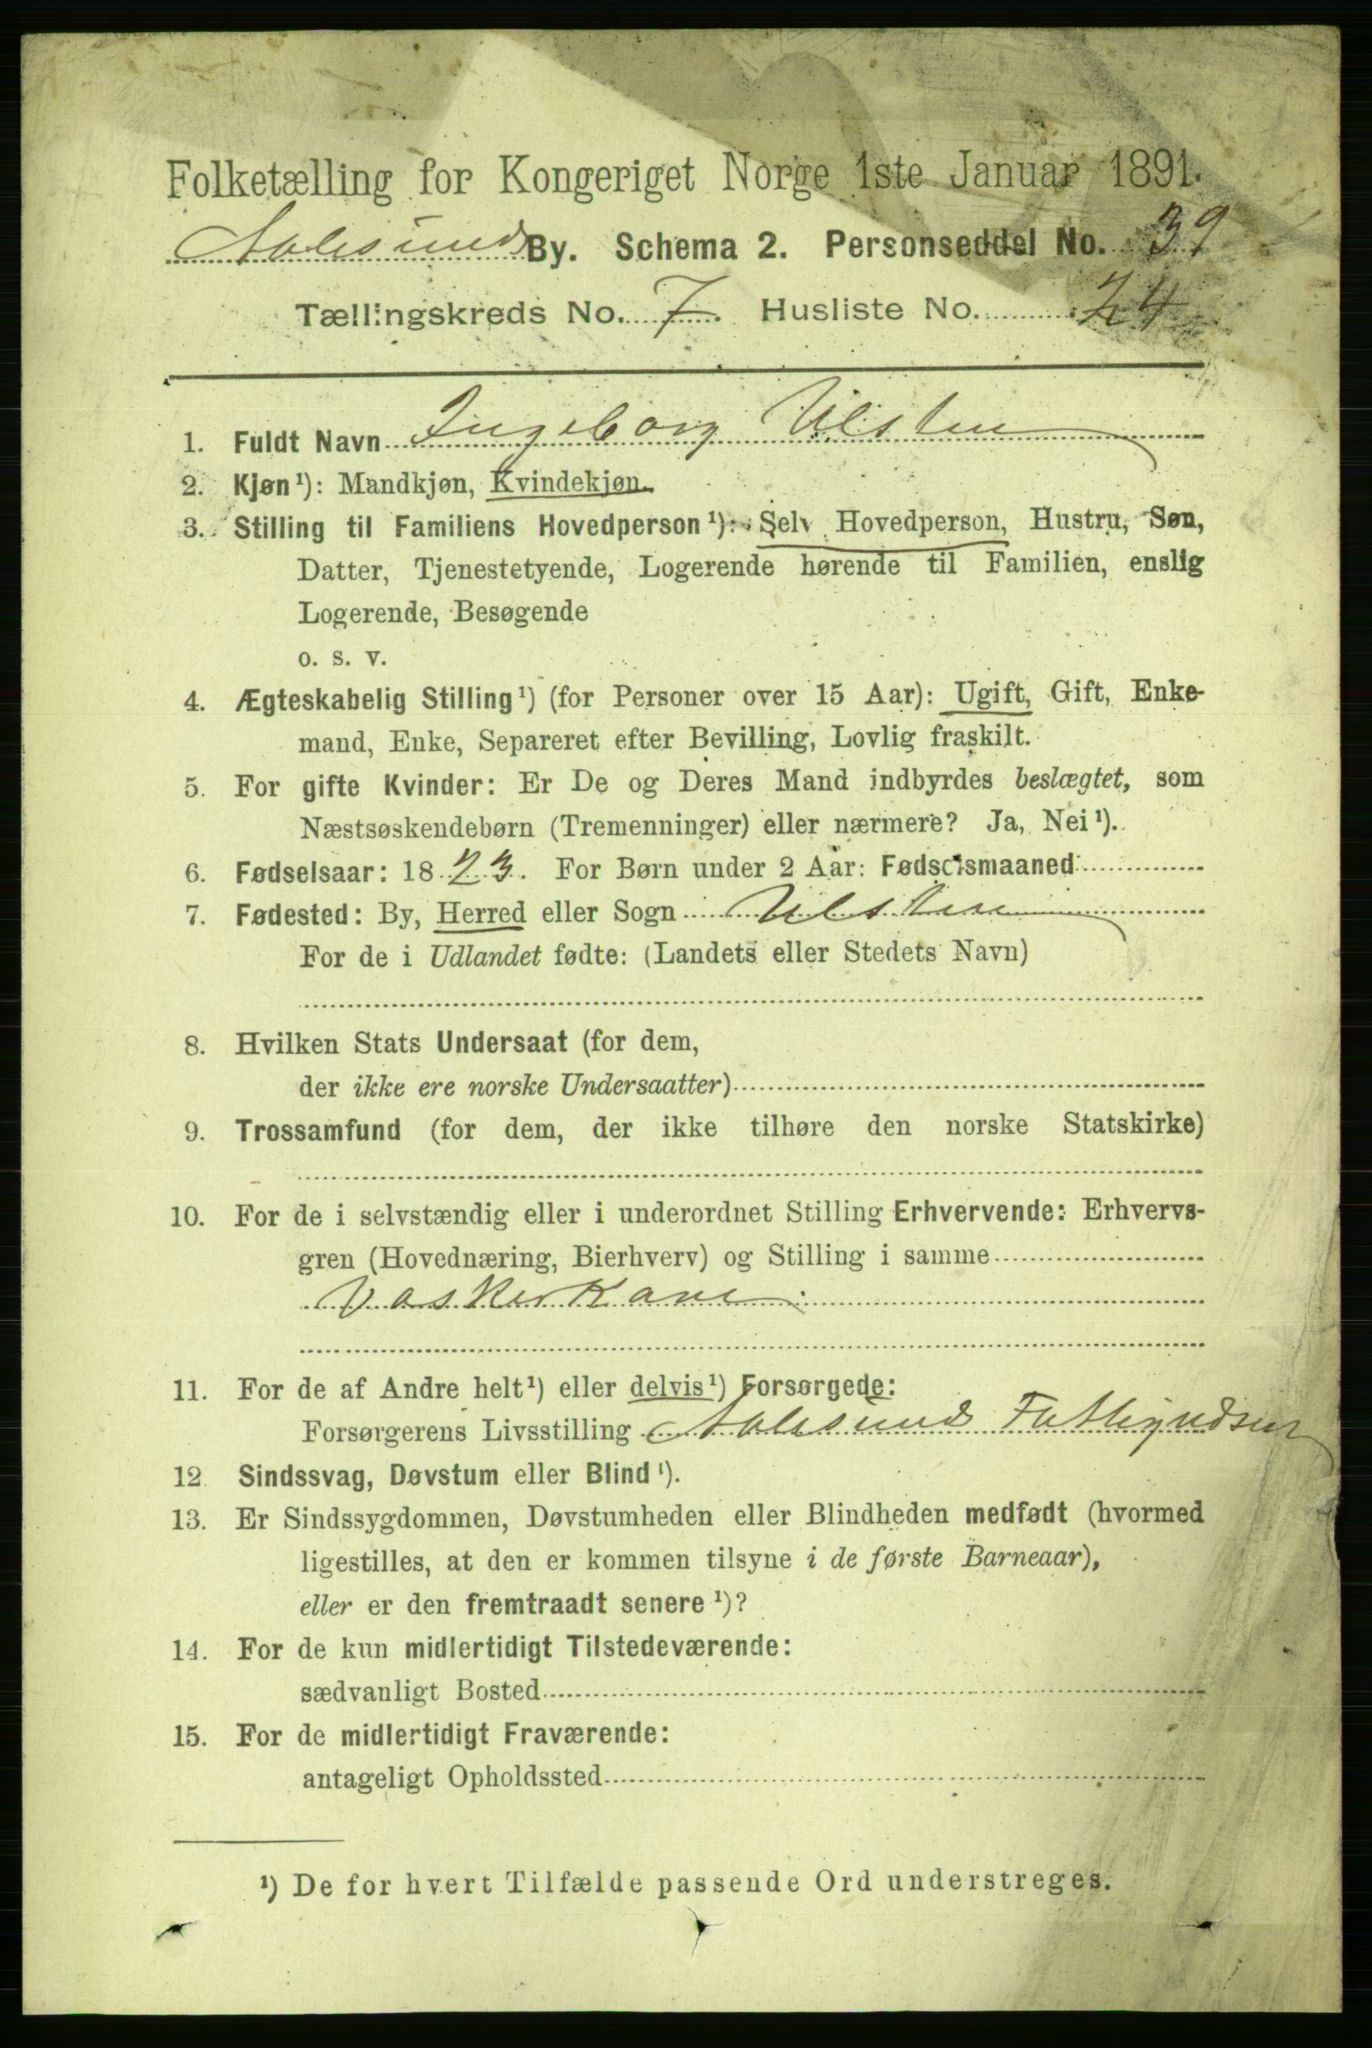 Folketælling for Kongeriget Norge 1ste Januar 1891.
Aalesunds By. Schema 2. Personseddel No. 39
Tællingskreds No. 7. Husliste No. 24
1. Fuldt Navn Ingeborg Ulsten
2. Kjøn¹): Mandkjøn, Kvindekjøn.
3. Stilling til Familiens Hovedperson¹): Selv Hovedperson, Hustru, Søn,
Datter, Tjenestetyende, Logerende hørende til Familien, enslig
Logerende, Besøgende
o. s. v.
4. Ægteskabelig Stilling¹) (for Personer over 15 Aar): Ugift, Gift, Enke-
mand, Enke, Separeret efter Bevilling, Lovlig fraskilt.
5. For gifte Kvinder: Er De og Deres Mand indbyrdes beslægtet, som
Næstsøskendebørn (Tremenninger) eller nærmere? Ja, Nei¹).
6. Fødselsaar: 1823. For Børn under 2 Aar: Fødselsmaaned
7. Fødested: By, Herred eller Sogn Ulsten
For de i Udlandet fødte: (Landets eller Stedets Navn)
8. Hvilken Stats Undersaat (for dem,
der ikke ere norske Undersaatter)
9. Trossamfund (for dem, der ikke tilhøre den norske Statskirke)
10. For de i selvstændig eller i underordnet Stilling Erhvervende: Erhvervs-
gren (Hovednæring, Bierhverv) og Stilling i samme
Vaskerkone
11. For de af Andre helt¹) eller delvis¹) Forsørgede:
Forsørgerens Livsstilling Aalesunds Fattigvæsen
12. Sindssvag, Døvstum eller Blind¹).
13. Er Sindssygdommen, Døvstumheden eller Blindheden medfødt (hvormed
ligestilles, at den er kommen tilsyne i de første Barneaar),
eller er den fremtraadt senere¹)?
14. For de kun midlertidigt Tilstedeværende:
sædvanligt Bosted
15. For de midlertidigt Fraværende:
antageligt Opholdssted
¹) De for hvert Tilfælde passende Ord understreges.